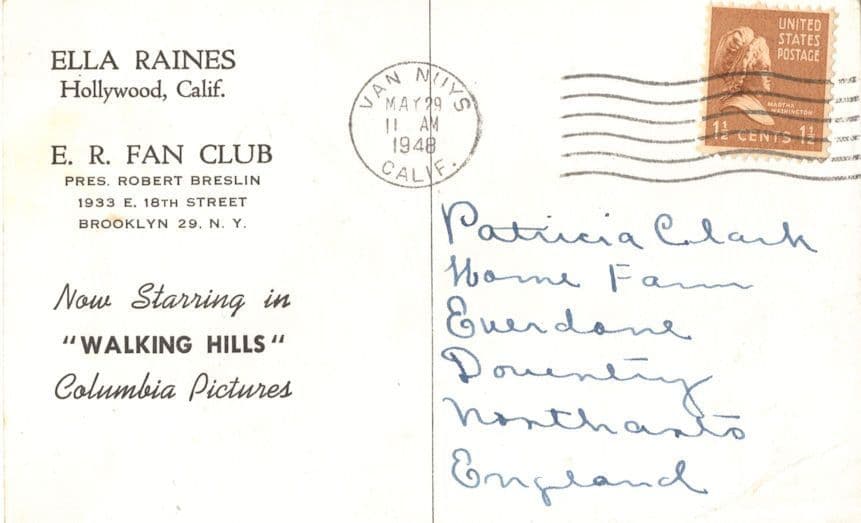 ELLA RAINES
Hollywood, Calif.
E. R. FAN CLUB
PRES. ROBERT BRESLIN
1933 E. 18TH STREET
BROOKLYN 29, N. Y.
Now Starring in
"WALKING HILLS"
Columbia Pictures
VAN NUYS
MAY 29
11 AM
1948
CALIF.
UNITED
STATES
POSTAGE
MARTHA
WASHINGTON
1½ CENTS 1½
Patricia Clark
Home Farm
Everdone
Doventry
Northants
England